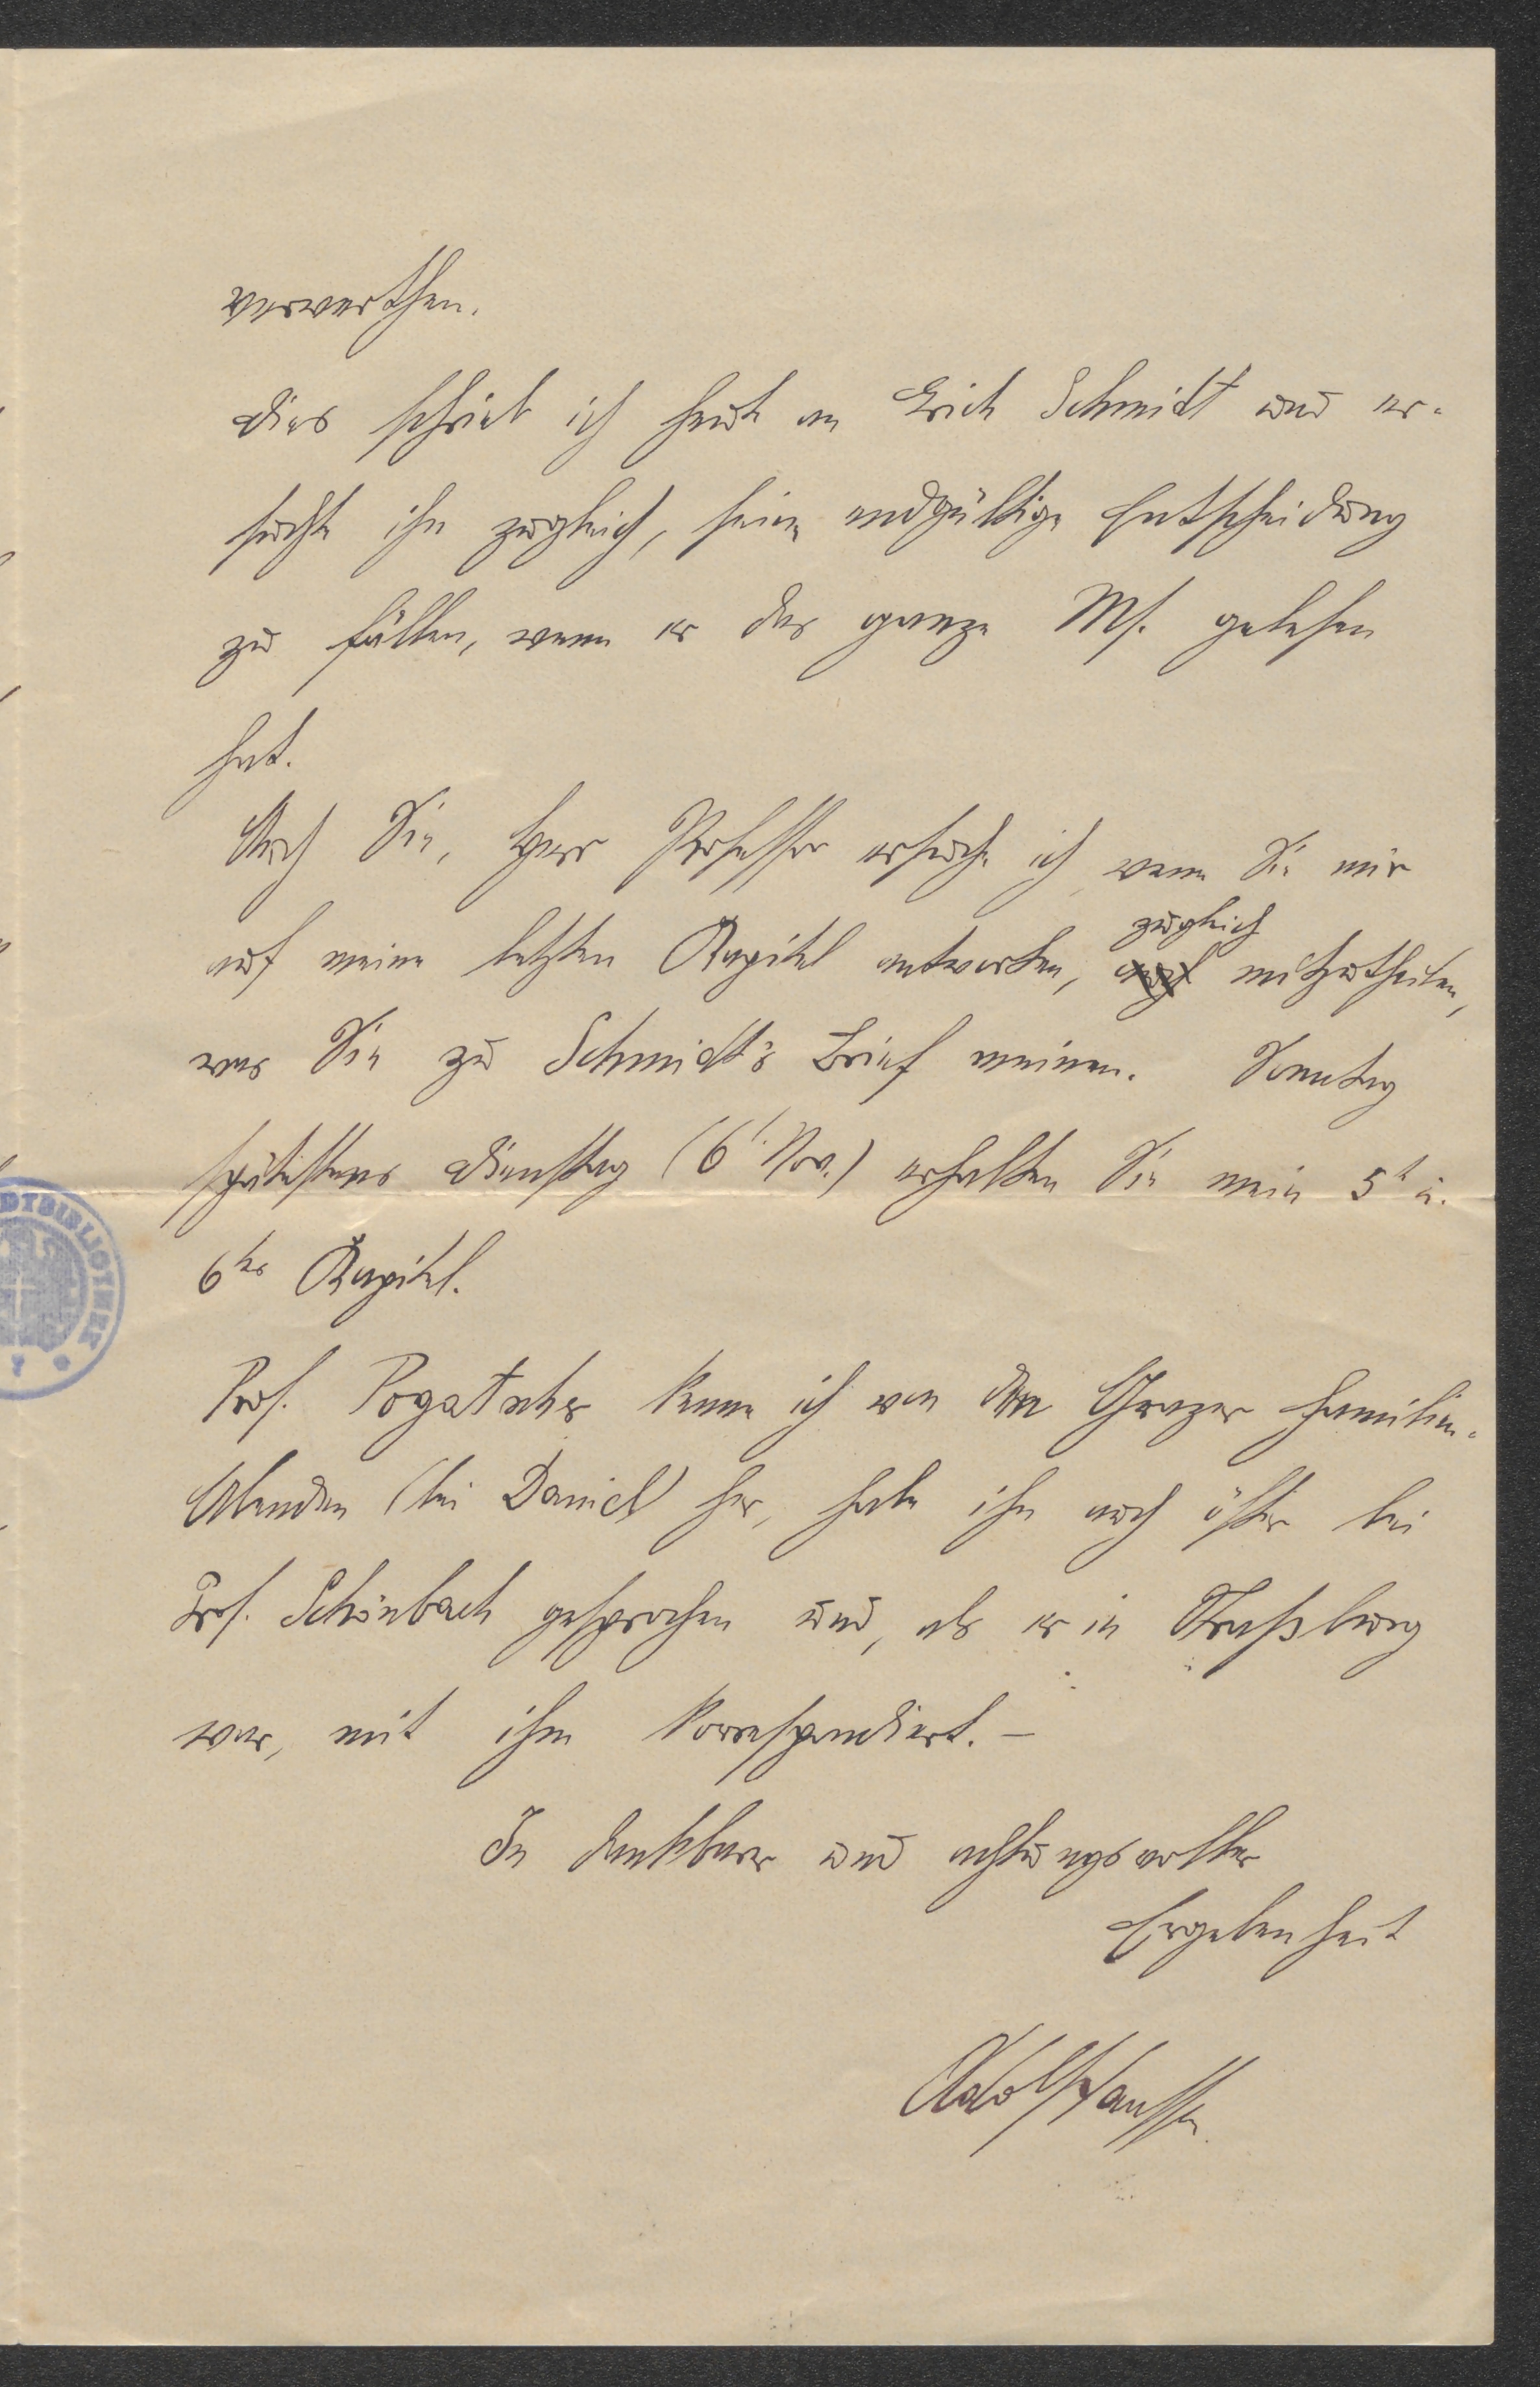 verwerthen.
Dies schrieb ich heute an Erich Schmidt und er-
suchte ihn zugleich, seine endgültige Entscheidung
zu fällen, wenn er das ganze Ms. gelesen
hat.
Auch Sie, Herr Professor ersuche ich, wenn Sie mir
zugleich
auf meine letzten Kapitel antworten, auch mitzutheilen,
was Sie zu Schmidt's Brief meinen. Sonntag
spätestens Dienstag (6. Nov.) erhalten Sie mein 5t u.
6tes Kapitel.
Prof. Pogatscher kenne ich von den Grazer Familien-
Abenden (bei Daniel) her, habe ihn auch öfter bei
Prof. Schönbach gesprochen und, als er in Straßburg
war, mit ihm korrespondiert. –
In dankbarer und achtungsvoller
Ergebenheit
Adolf Hauffen
STADTBIBLIOTHEK